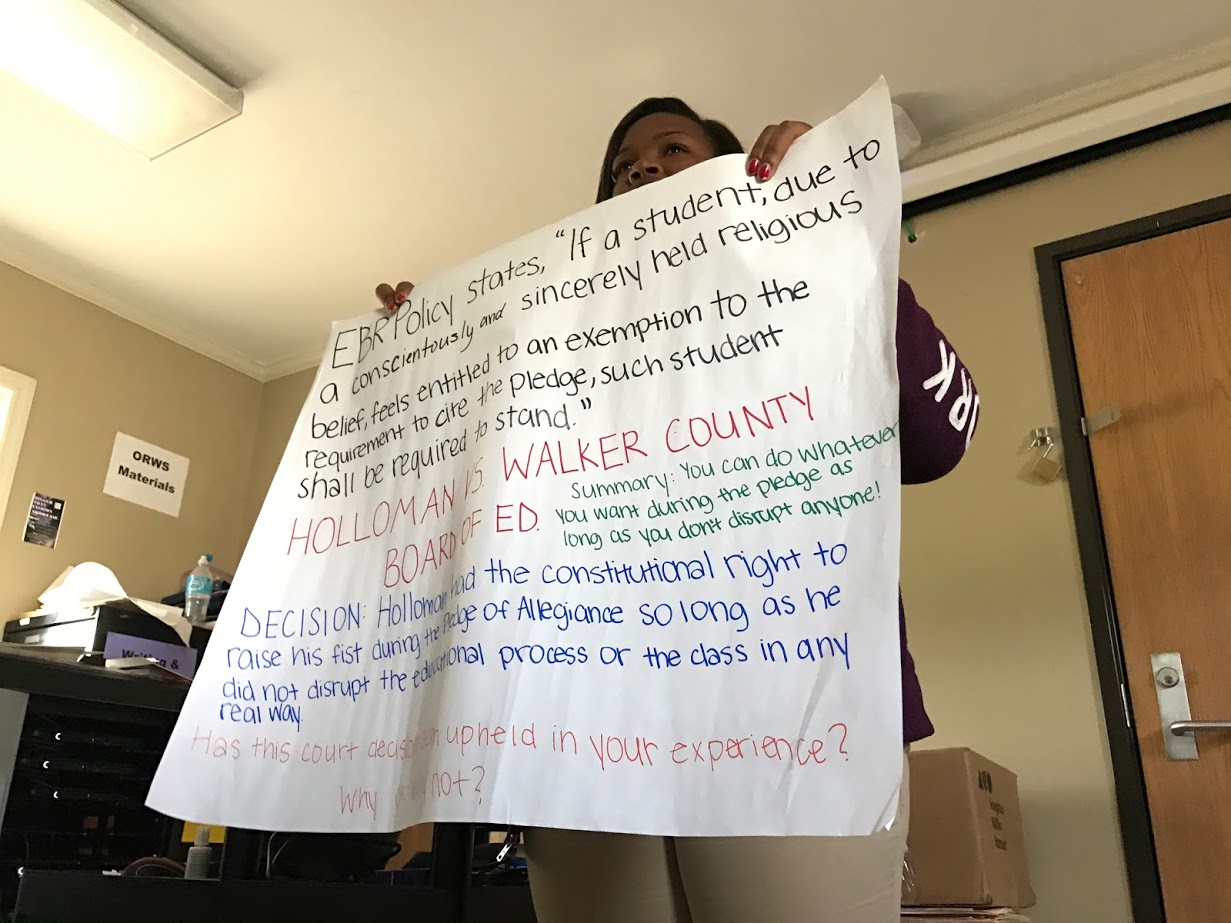 EBR Policy states, "If a student, due to
a conscientously and sincerely held religious
belief, feels entitled to an exemption to the
requirement to cite the pledge, such student
shall be required to stand."
HOLLOMAN VS. WALKER COUNTY
BOARD OF ED.
Summary: You can do whatever
you want during the pledge as
long as you don't disrupt anyone!
DECISION: Holloman had the constitutional right to
raise his fist during the Pledge of Allegiance so long as he
did not disrupt the educational process or the class in any
real way.
Has this court decision upheld in your experience?
Why not?
ORWS
Materials
Writing &
RK